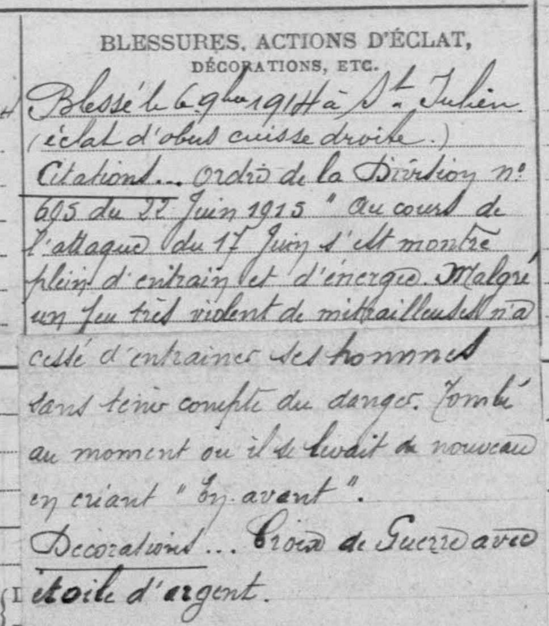 BLESSURES, ACTIONS D'ÉCLAT,
DÉCORATIONS, ETC.
Blessé le 6 9bre 1914 à St Julien
(éclat d'obus cuisse droite.)
Citations... Ordre de la Division no
695 du 22 Juin 1915 " Au cours de
l'attaque du 17 Juin s'est montré
plein d'entrain et d'énergie. Malgré
un feu très violent de mitrailleuses n'a
cessé d'entrainer ses hommes
sans tenir compte du danger. Tombé
au moment ou il se levait de nouveau
en criant " En avant ".
Décorations... Croix de Guerre avec
étoile d'argent.